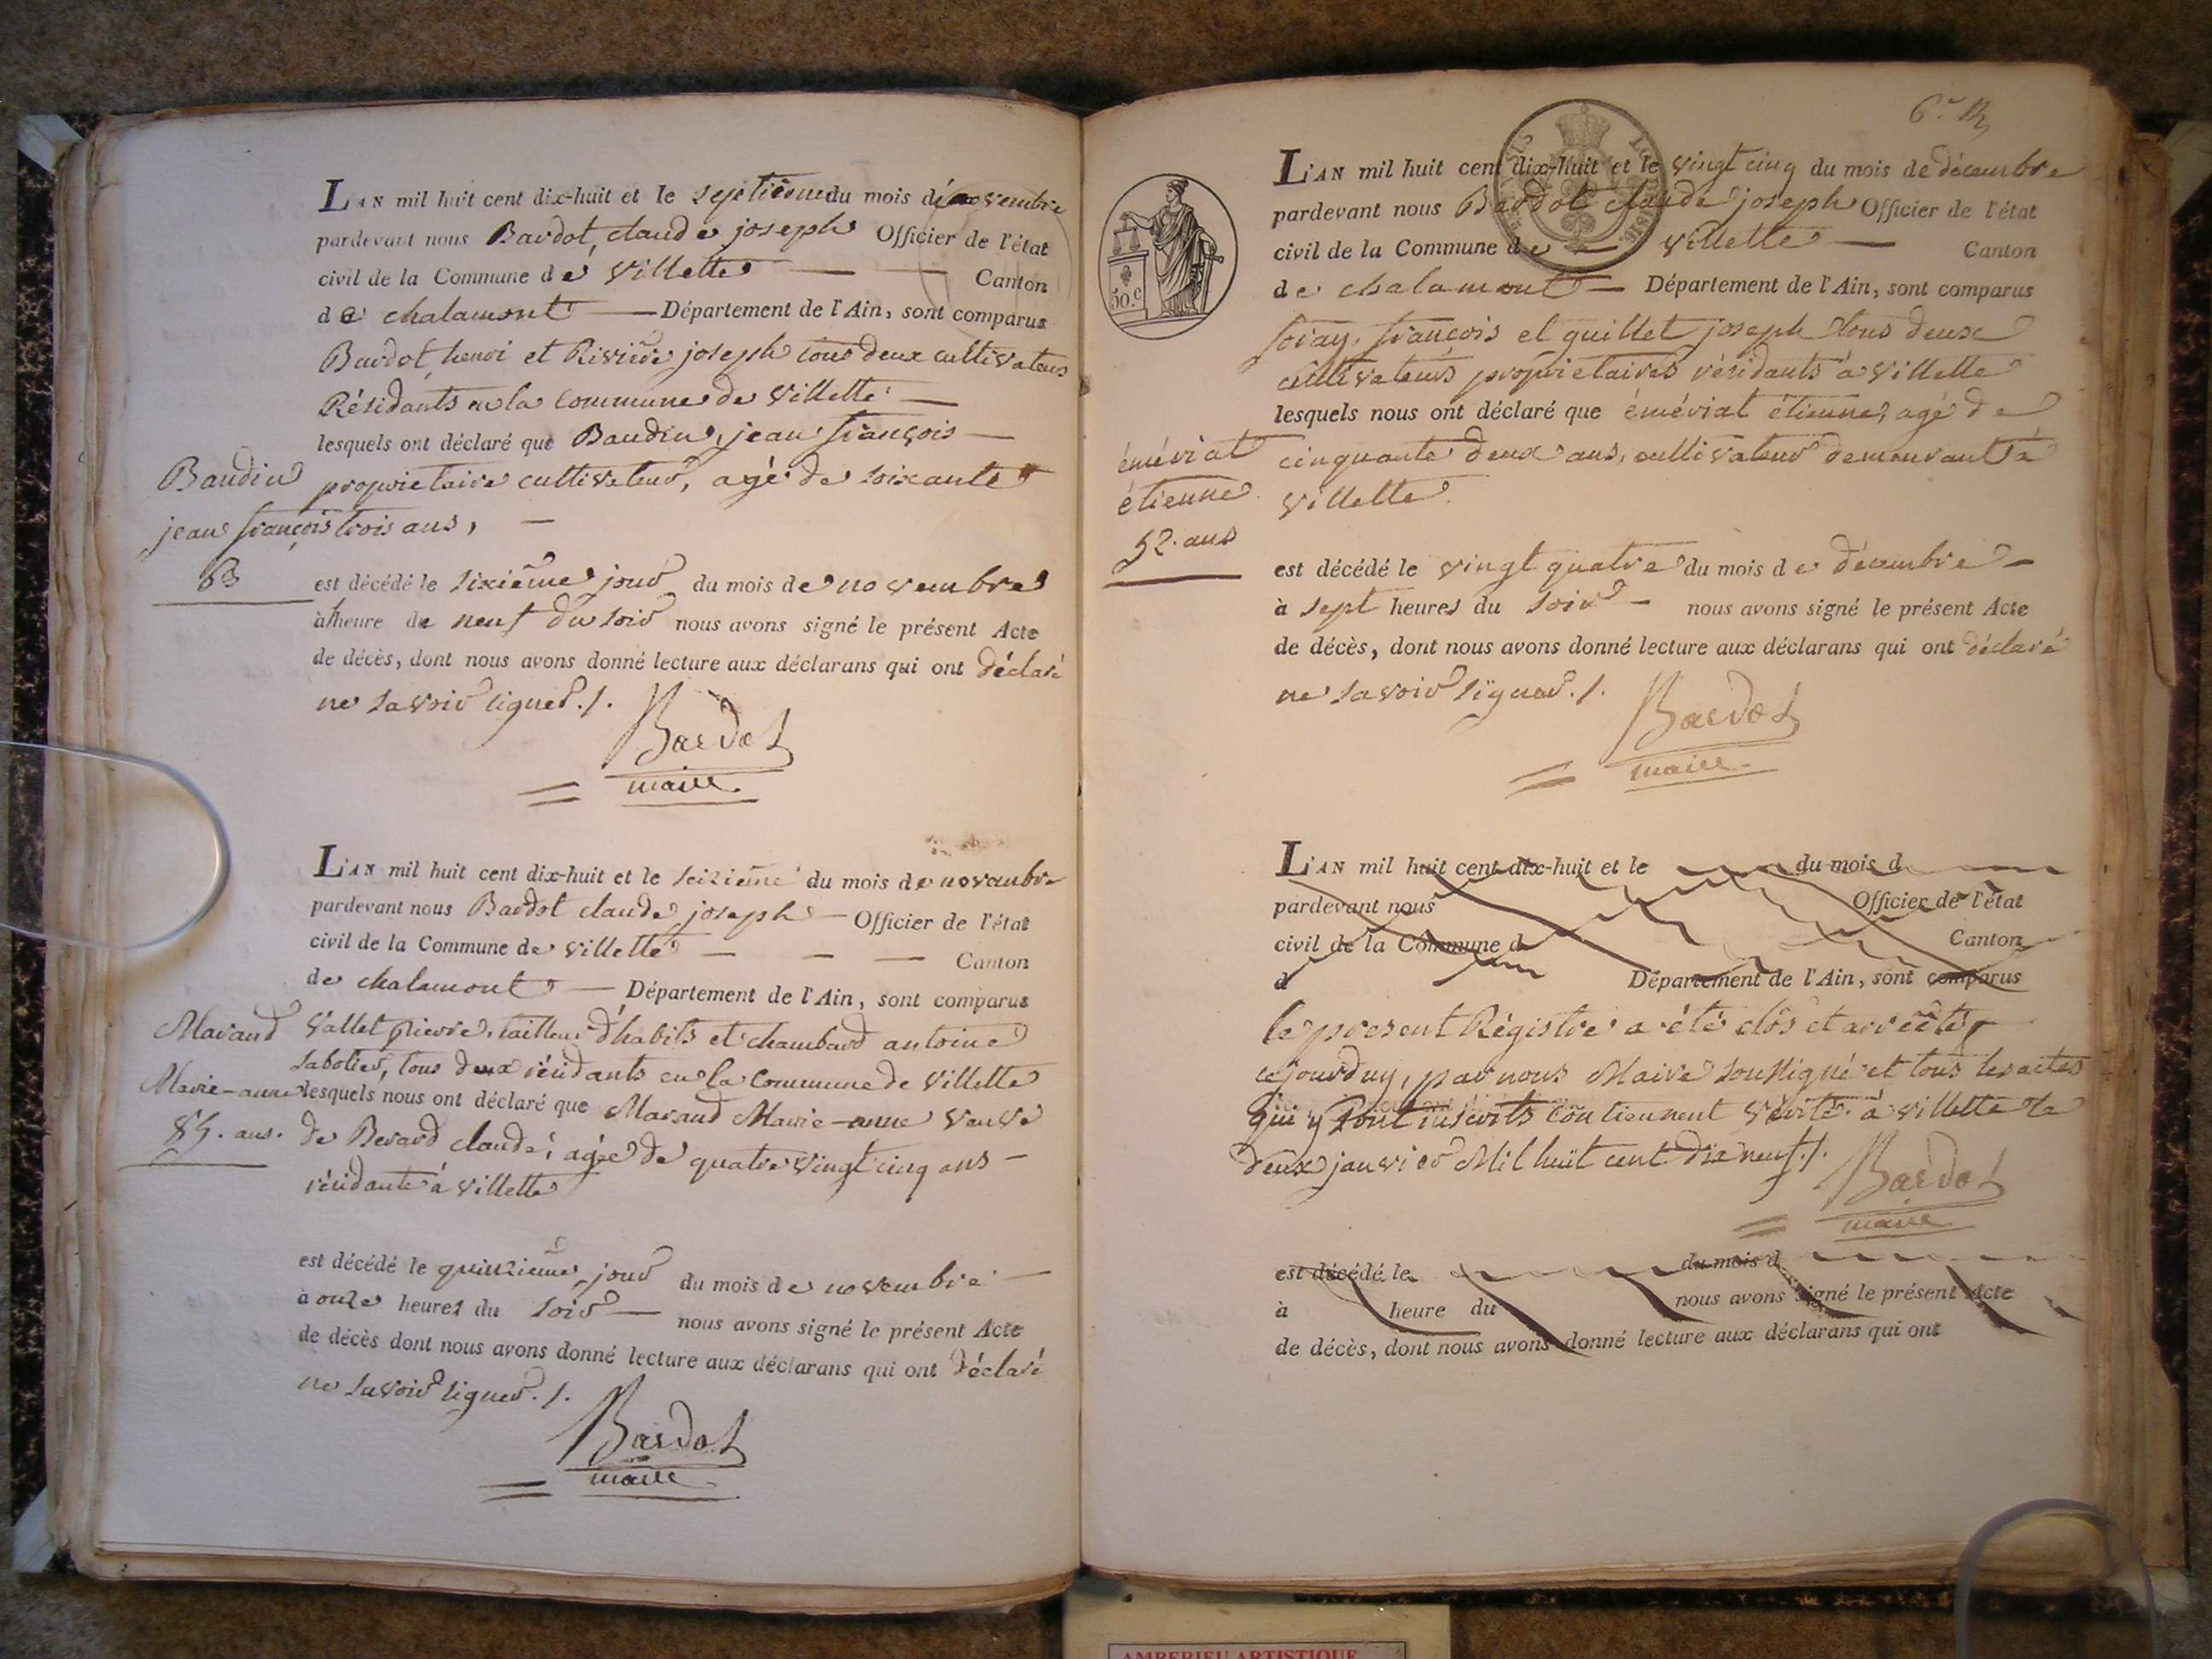 L'AN mil huit cent dix-huit et le septième du mois de novembre
pardevant nous Bardot, claude joseph Officier de l'état
civil de la Commune de Villette Canton
de chalamont Département de l'Ain, sont comparus
Bardot, henri et Rivière joseph tous deux cultivateurs
Résidants en la commune de Villette
lesquels ont déclaré que Baudin, jean françois
Baudin propriétaire cultivateur, agé de soixante
jean françois trois ans,
63 est décédé le sixième jour du mois de novembre
à heure de neuf du soir nous avons signé le présent Acte
de décès, dont nous avons donné lecture aux déclarans qui ont déclaré
ne savoir signer./.
Bardot
maire
L'AN mil huit cent dix-huit et le seizième du mois de novembre
pardevant nous Bardot claude joseph Officier de l'état
civil de la Commune de Villette Canton
de chalamont Département de l'Ain, sont comparus
Marand Vallet pierre, tailleur d'habits et chambard antoine
sabotier, tous deux résidants en la commune de Villette
Marie-anne lesquels nous ont déclaré que Marand Marie-anne veuve
85. ans. de Berard claude, agée de quatre vingt cinq ans
résidante à villette
est décédé le quinzième jour du mois de novembre
à onze heures du soir nous avons signé le présent Acte
de décès dont nous avons donné lecture aux déclarans qui ont déclaré
ne savoir signer./.
Bardot
maire
L'AN mil huit cent dix-huit et le vingt cinq du mois de décembre
pardevant nous Bardot claude joseph Officier de l'état
civil de la Commune de Villette Canton
50.c de chalamont Département de l'Ain, sont comparus
foray, françois et guillet joseph tous deux
cultivateurs propriétaires résidants à Villette
lesquels nous ont déclaré que éméviat étienne, agé de
éméviat cinquante deux ans, cultivateur demeurant à
étienne villette.
52. ans
est décédé le vingt quatre du mois de décembre
à sept heures du soir nous avons signé le présent Acte
de décès, dont nous avons donné lecture aux déclarans qui ont déclaré
ne savoir signer./.
Bardot
maire
L'AN mil huit cent dix-huit et le du mois d
pardevant nous Officier de l'état
civil de la Commune d Canton
d Département de l'Ain, sont comparus
le présent Régistre a été clôs et arrêté,
cejourduy, par nous Maire soussigné et tous les actes
qui y sont inscrits contiennent vérité. à villette le
deux janvier Mil huit cent dix neuf./.
Bardot
maire
est décédé le du mois d
à heure du nous avons signé le présent Acte
de décès, dont nous avons donné lecture aux déclarans qui ont
AMBERIEU ARTISTIQUE